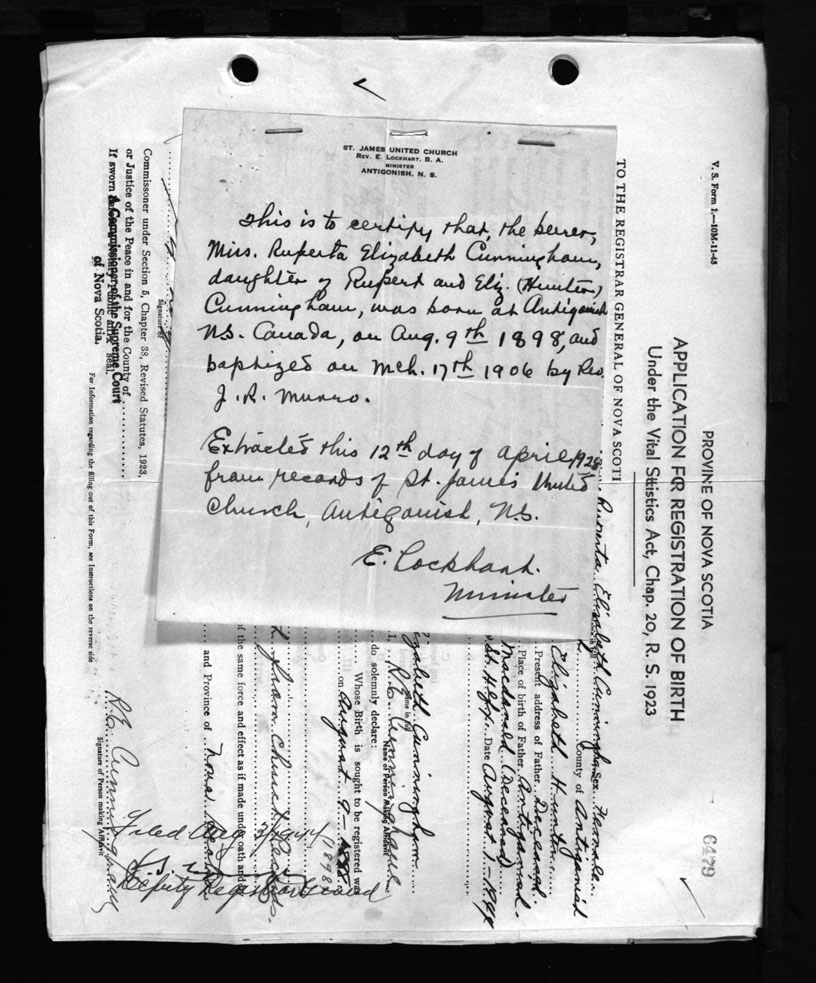 ST. JAMES UNITED CHURCH
REV. E. LOCKHART, B. A.
MINISTER
ANTIGONISH, N. S.
This is to certify that, the bearer,
Miss. Ruperta Elizabeth Cunningham,
daughter of Rupert and Eliz. (Hunter)
Cunningham, was born at Antigonish
N.S. Canada, on Aug. 9th 1898, and
baptized on Mch. 17th 1906 by Rev.
J. R. Munro.
Extracted this 12th day of April 1928
from records of St. James United
Church, Antigonish, N.S.
E. Lockhart.
Minister
V. S. Form 1.—10M-11-43
PROVINE OF NOVA SCOTIA
APPLICATION FOR REGISTRATION OF BIRTH
Under the Vital Statistics Act, Chap. 20, R. S. 1923
6479
TO THE REGISTRAR GENERAL OF NOVA SCOTI
Ruperta Elizabeth Cunningham Sex Female
County of Antigonish
Elizabeth Hunter
Present address of Father Deceased
Place of birth of Father Antigonish
Macdonald (Deceased)
St. Hfx. Date August 1-1944
Elizabeth Cunningham
I, R. E. Cunningham
Name of Person Making Affidavit
do solemnly declare:
Whose Birth is sought to be registered was
on August 9- 1898
from Church Records.
of the same force and effect as if made under oath and
and Province of Nova Scotia
R. E. Cunningham
Signature of Person making Affidavit
Filed Aug 3/1944
Deputy Registrar General
Signature of
Commissioner under Section 5, Chapter 38, Revised Statutes, 1923,
or Justice of the Peace in and for the County of
If sworn a Commissioner of the Supreme Court
of Nova Scotia.
For Information regarding the filling out of this Form, see Instructions on the reverse side